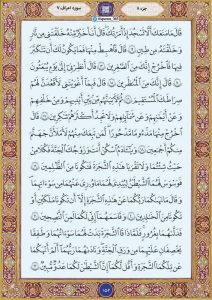 سوره اعراف ۷
جزء ۸
قَالَ مَا مَنَعَكَ أَلَّا تَسْجُدَ إِذْ أَمَرْتُكَ قَالَ أَنَا۠ خَيْرٌ مِّنْهُ خَلَقْتَنِى مِن نَّارٍ
وَخَلَقْتَهُۥ مِن طِينٍ ۝١٢ قَالَ فَٱهْبِطْ مِنْهَا فَمَا يَكُونُ لَكَ أَن تَتَكَبَّرَ
فِيهَا فَٱخْرُجْ إِنَّكَ مِنَ ٱلصَّٰغِرِينَ ۝١٣ قَالَ أَنظِرْنِىٓ إِلَىٰ يَوْمِ يُبْعَثُونَ
۝١٤ قَالَ إِنَّكَ مِنَ ٱلْمُنظَرِينَ ۝١٥ قَالَ فَبِمَآ أَغْوَيْتَنِى لَأَقْعُدَنَّ لَهُمْ
صِرَٰطَكَ ٱلْمُسْتَقِيمَ ۝١٦ ثُمَّ لَءَاتِيَنَّهُم مِّنۢ بَيْنِ أَيْدِيهِمْ وَمِنْ خَلْفِهِمْ
وَعَنْ أَيْمَٰنِهِمْ وَعَن شَمَآئِلِهِمْ وَلَا تَجِدُ أَكْثَرَهُمْ شَٰكِرِينَ ۝١٧ قَالَ
ٱخْرُجْ مِنْهَا مَذْءُومًا مَّدْحُورًا لَّمَن تَبِعَكَ مِنْهُمْ لَأَمْلَأَنَّ جَهَنَّمَ
مِنكُمْ أَجْمَعِينَ ۝١٨ وَيَٰٓـَٔادَمُ ٱسْكُنْ أَنتَ وَزَوْجُكَ ٱلْجَنَّةَ فَكُلَا مِنْ
حَيْثُ شِئْتُمَا وَلَا تَقْرَبَا هَٰذِهِ ٱلشَّجَرَةَ فَتَكُونَا مِنَ ٱلظَّٰلِمِينَ ۝١٩
فَوَسْوَسَ لَهُمَا ٱلشَّيْطَٰنُ لِيُبْدِىَ لَهُمَا مَا وُۥرِىَ عَنْهُمَا مِن سَوْءَٰتِهِمَا
وَقَالَ مَا نَهَىٰكُمَا رَبُّكُمَا عَنْ هَٰذِهِ ٱلشَّجَرَةِ إِلَّآ أَن تَكُونَا مَلَكَيْنِ أَوْ
تَكُونَا مِنَ ٱلْخَٰلِدِينَ ۝٢٠ وَقَاسَمَهُمَآ إِنِّى لَكُمَا لَمِنَ ٱلنَّٰصِحِينَ ۝٢١
فَدَلَّىٰهُمَا بِغُرُورٍ فَلَمَّا ذَاقَا ٱلشَّجَرَةَ بَدَتْ لَهُمَا سَوْءَٰتُهُمَا وَطَفِقَا
يَخْصِفَانِ عَلَيْهِمَا مِن وَرَقِ ٱلْجَنَّةِ وَنَادَىٰهُمَا رَبُّهُمَآ أَلَمْ أَنْهَكُمَا
عَن تِلْكُمَا ٱلشَّجَرَةِ وَأَقُل لَّكُمَآ إِنَّ ٱلشَّيْطَٰنَ لَكُمَا عَدُوٌّ مُّبِينٌ ۝٢٢
۱۵۲